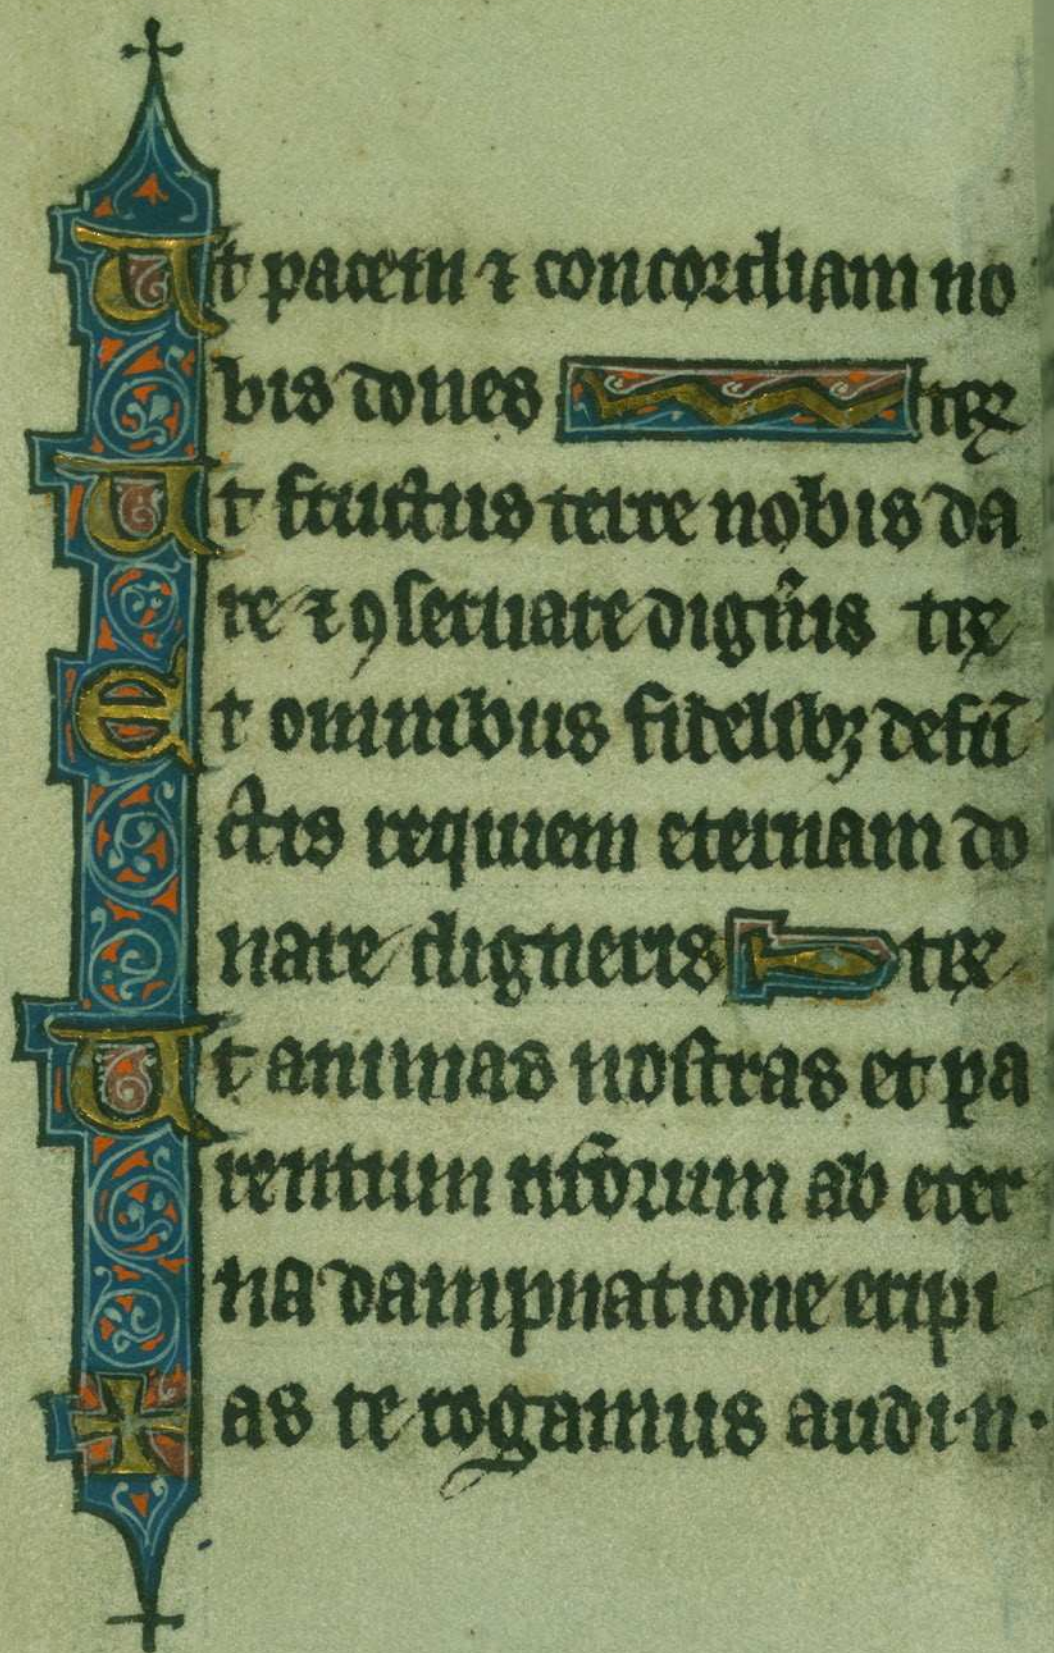 Ut pacem ⁊ concordiam no
bis dones teꝝ
Ut fructus terre nobis da
re ⁊ ꝯseruare dign̄is teꝝ
Et omnibus fidelibꝫ defū
ctis requiem eternam do
nare digneris teꝝ
Ut animas nostras et pa
rentum nr̄orum ab eter
na dampnatione eripi
as te rogamus audi·n·